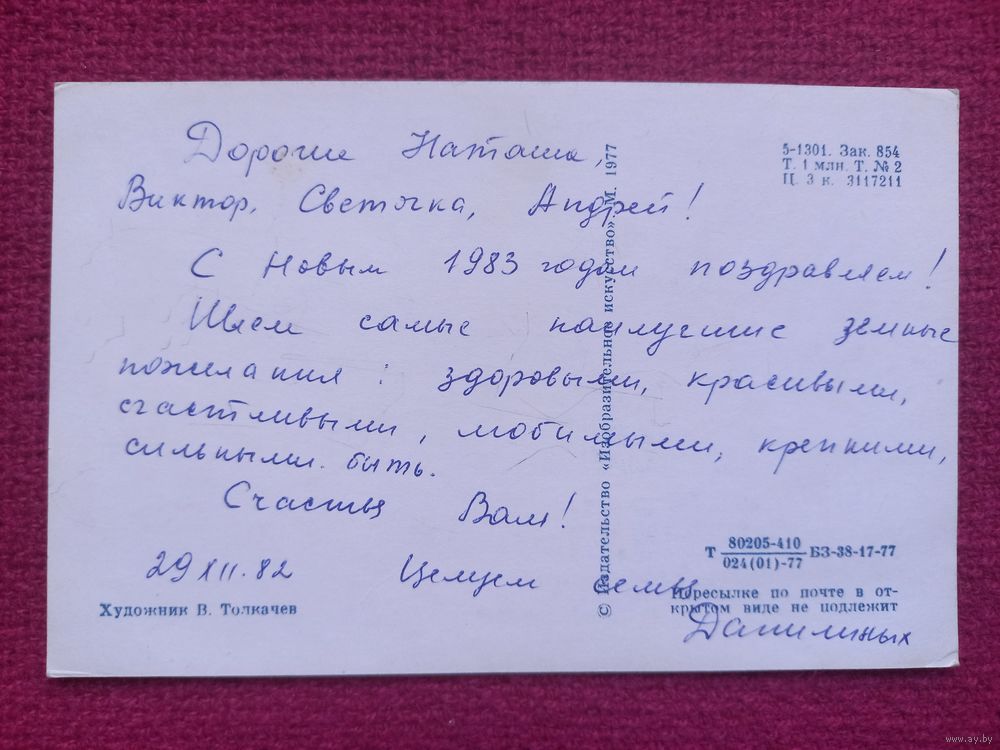 Дорогие Наташа,
Виктор, Светочка, Андрей!
С Новым 1983 годом поздравляем!
Шлем самые наилучшие земные
пожелания: здоровыми, красивыми,
счастливыми, любимыми, крепкими,
сильными быть.
Счастья Вам!
29 XII. 82 Целуем семья
Данилиных
5-1301. Зак. 854
Т. 1 млн. Т. № 2
Ц. 3 к. 3117211
© Издательство «Изобразительное искусство». М. 1977
Т 80205-410 БЗ-38-17-77
024(01)-77
Пересылке по почте в от-
крытом виде не подлежит
Художник В. Толкачев
www.ay.by